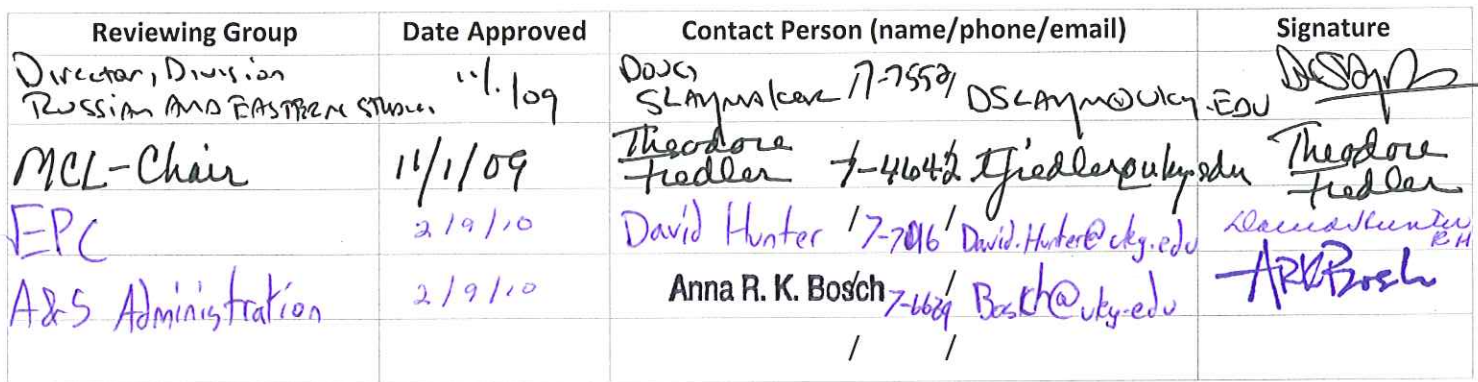 Reviewing Group Date Approved Contact Person (name/phone/email) Signature
Director, Division
Russian AND EASTERN Studies 11/1/09 Doug SLAYMAKER / 7-7552 / DSLAYM@UKY.EDU
MCL-Chair 11/1/09 Theodore Fiedler / 7-4642 / tfiedler@uky.edu Theodore Fiedler
EPC 2/9/10 David Hunter / 7-7016 / David.Hunter@uky.edu David Hunter RH
A&S Administration 2/9/10 Anna R. K. Bosch / 7-6689 / Bosch@uky.edu ARKBosch
/ /